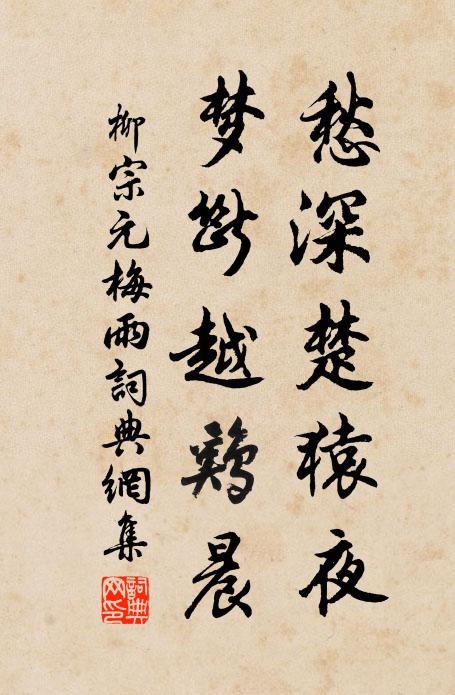 愁深楚猿夜
梦断越鸡晨
柳宗元梅雨詞典網集
詞典網印